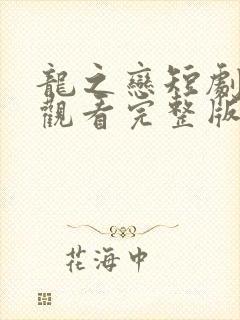 龍之戀短劇
觀看完整版
花海中